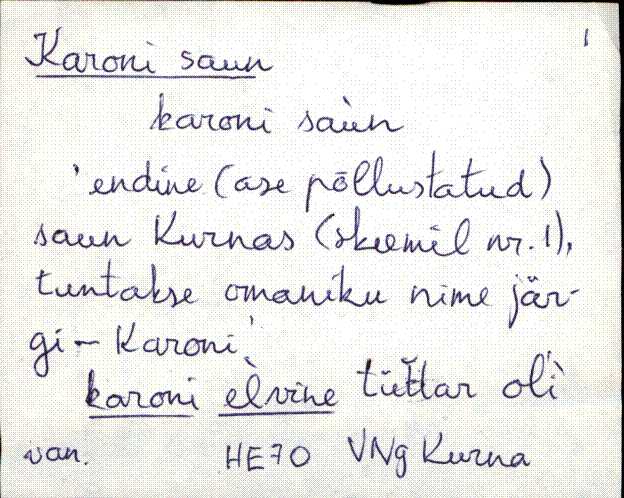 1
Karoni saun
karoni saùn
'endine (ase põllustatud)
saun Kurnas (skeemil nr. 1),
tuntakse omaniku nime jär-
gi – Karoni.'
karoni èlvine tüt̆tar oĺ̀i
van. HE70 VNg Kurna